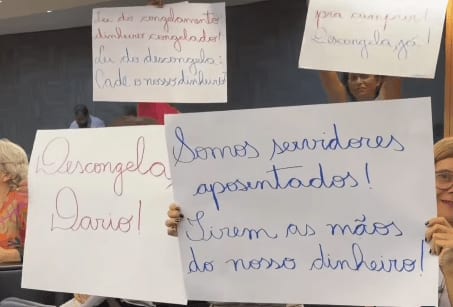 Lei do congelamento
dinheiro congelado!
Lei do descongela:
Cadê o nosso dinheiro
pra cumprir!
Descongela já!
¡Descongela,
Dario!
Somos servidores
aposentados!
Tirem as mãos
do nosso dinheiro!